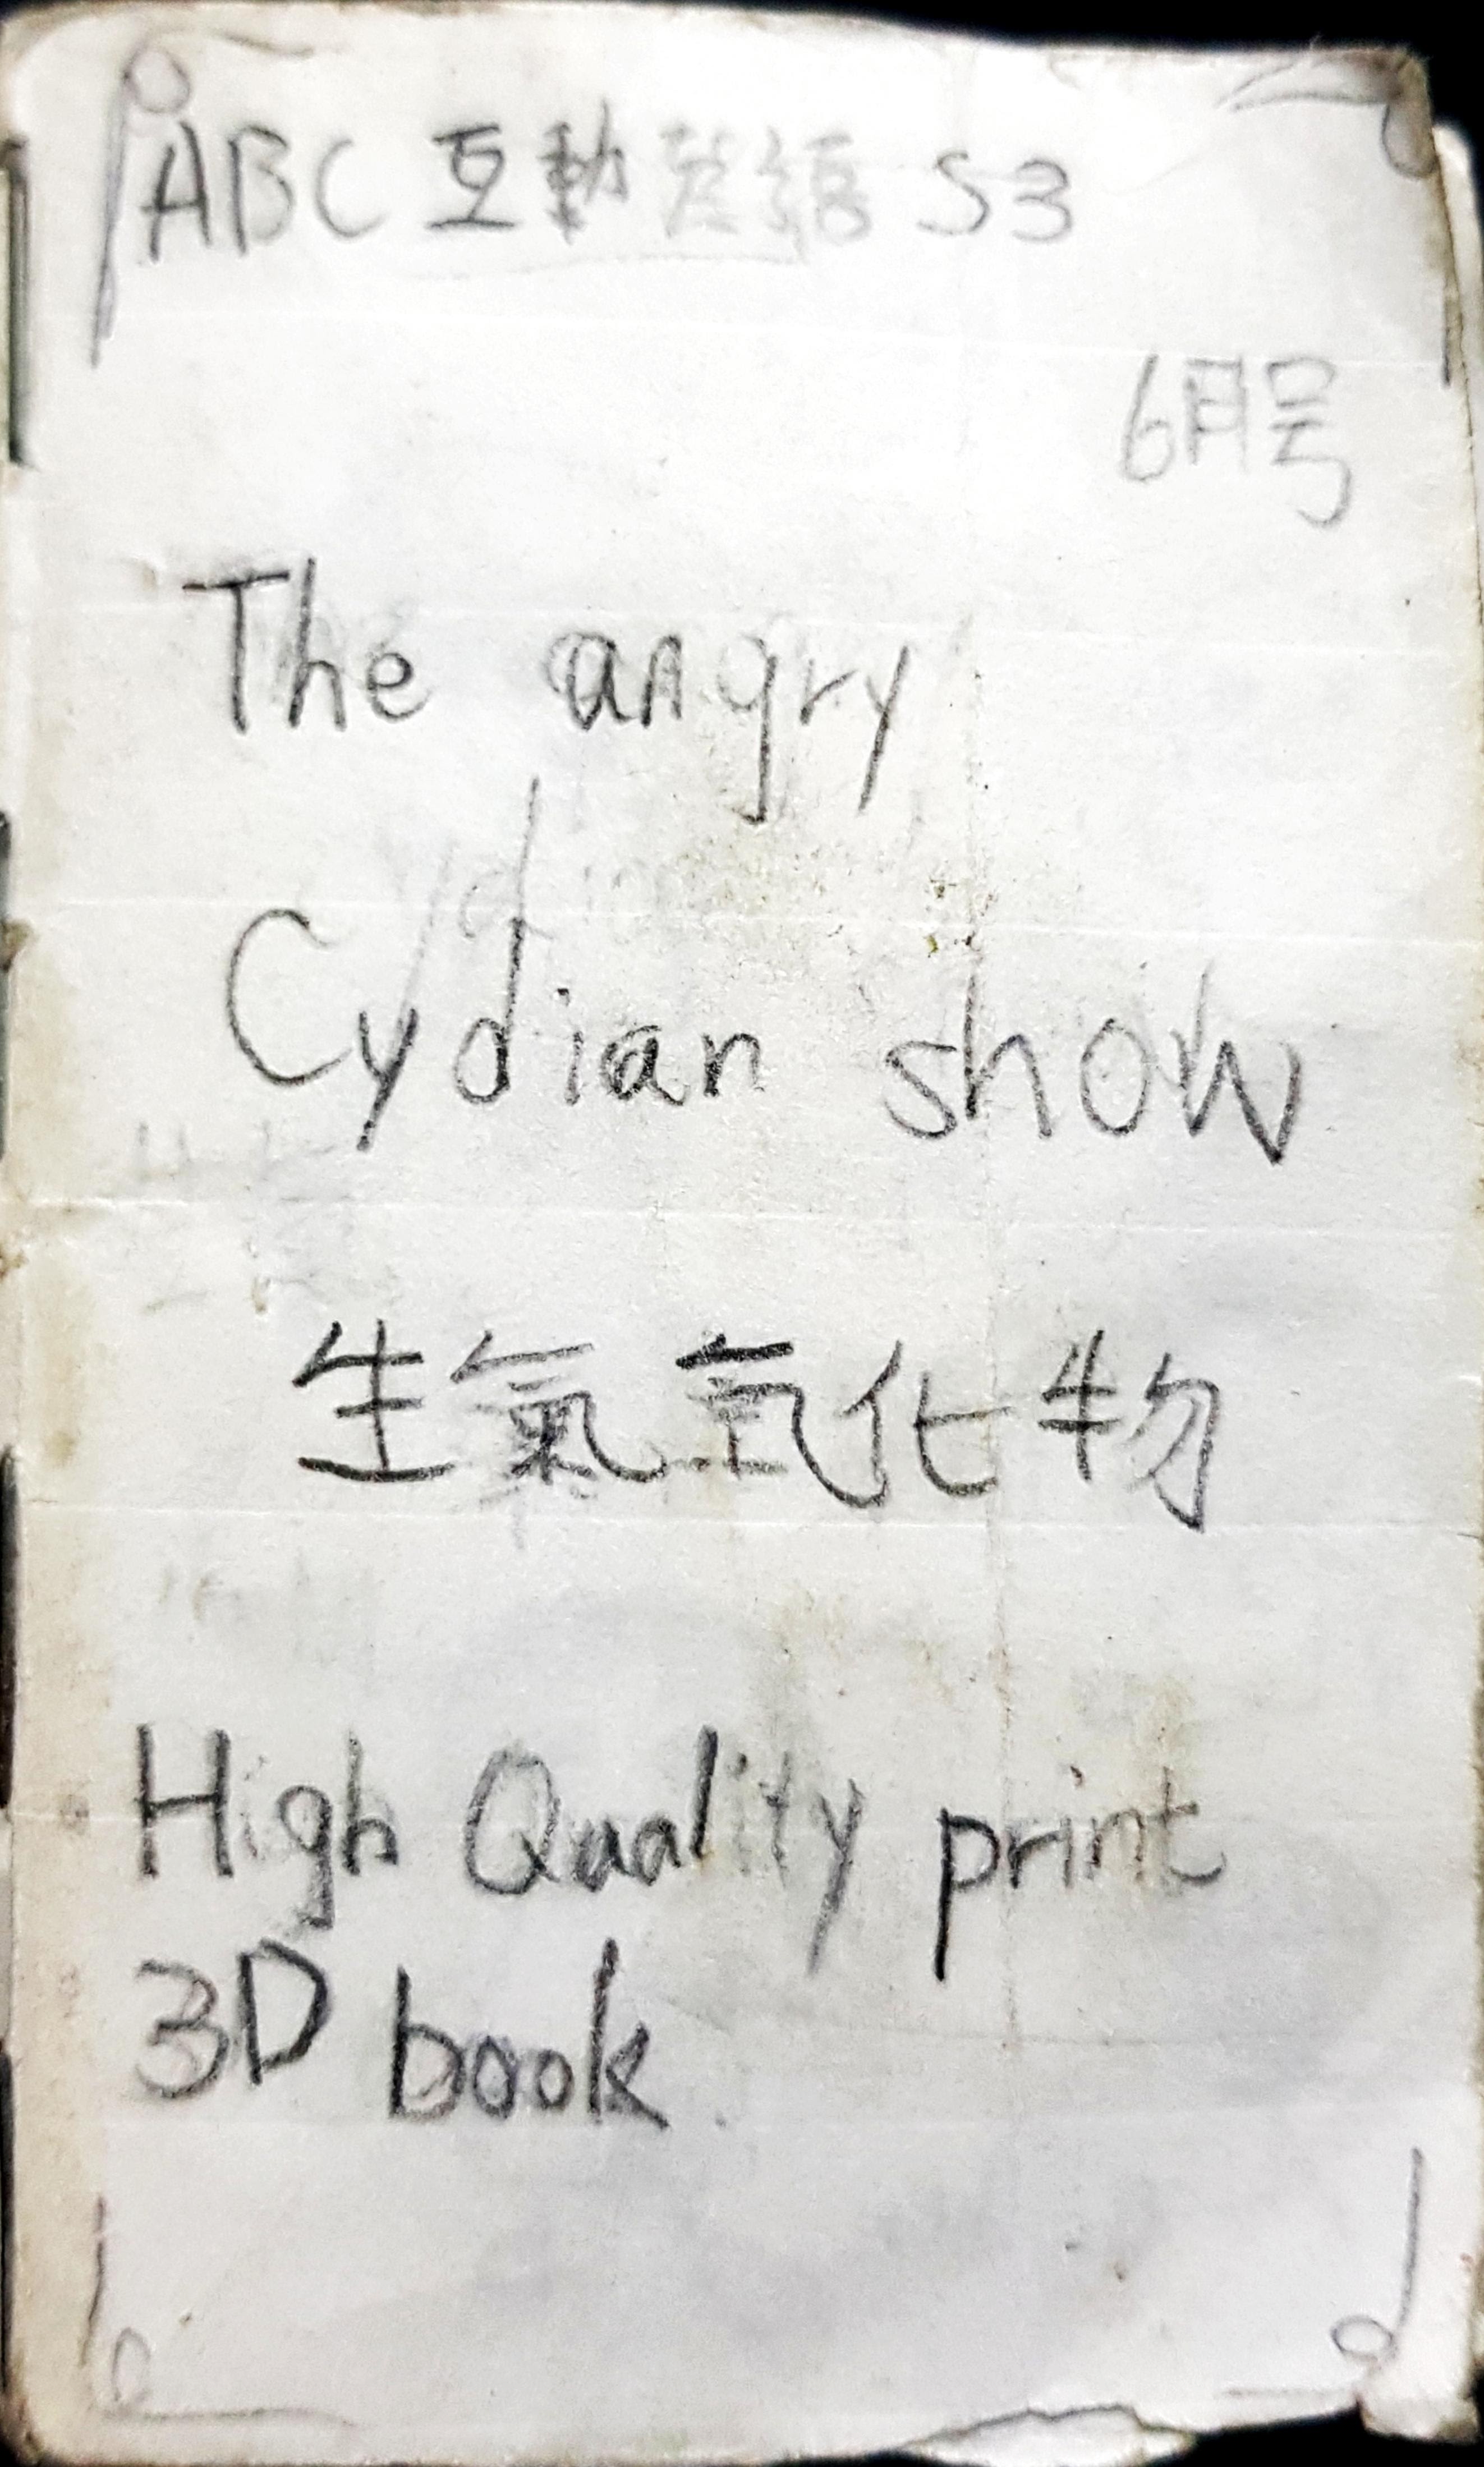 ABC 互動英語 S3
6月号
The angry
Cydian show
生氣氧化物
High Quality print
3D book